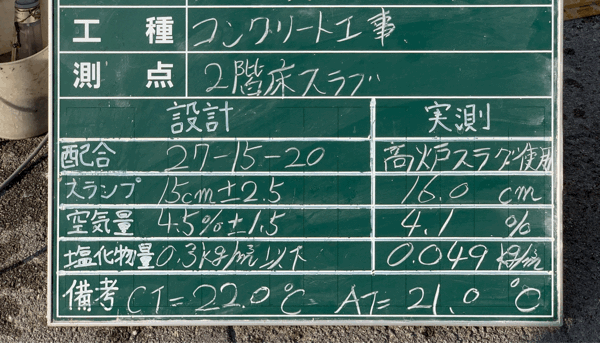 工種 コンクリート工事
測点 2階床スラブ
設計 実測
配合 27-15-20 高炉スラグ使用
スランプ 15cm±2.5 16.0 cm
空気量 4.5%±1.5 4.1 %
塩化物量 0.3kg/m³以下 0.049 kg/m³
備考 CT=22.0℃ AT=21.0℃